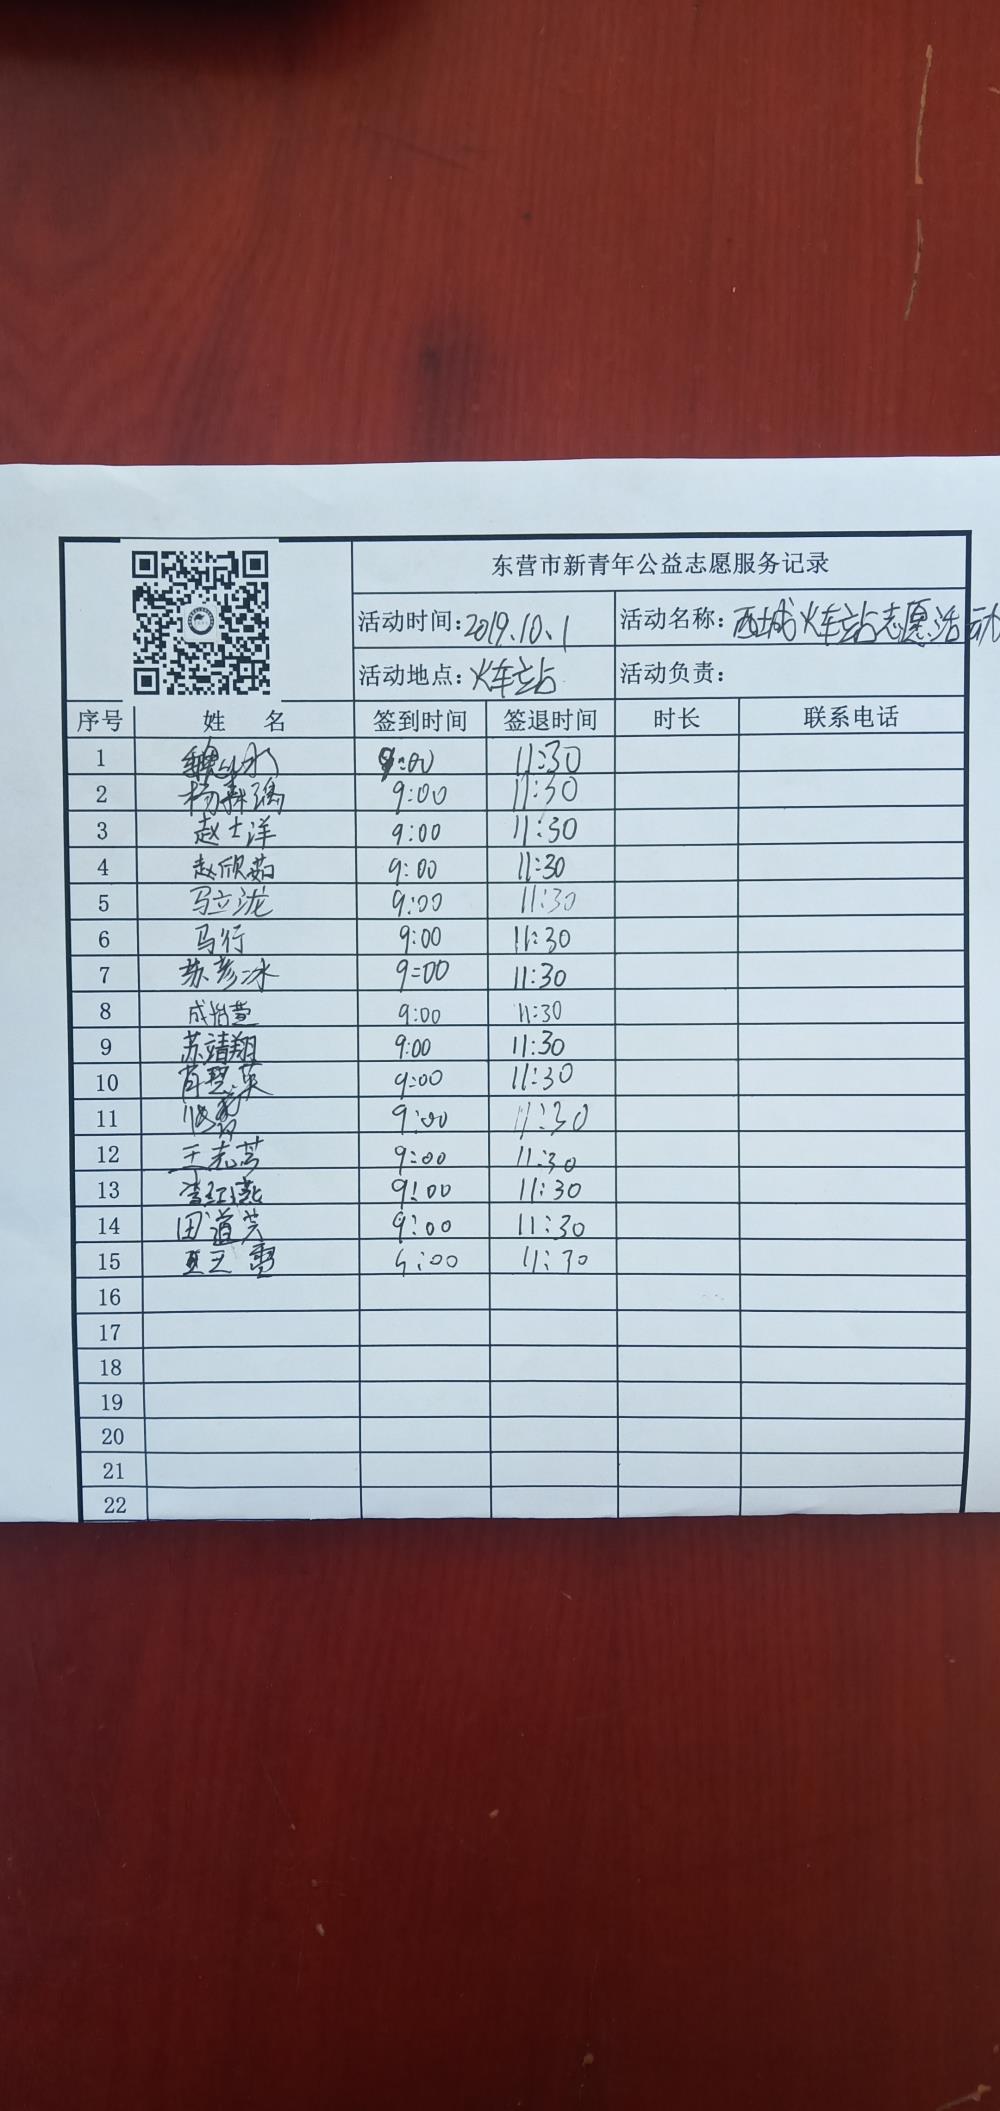 东营市新青年公益志愿服务记录
活动时间:2019.10.1 活动名称:西城火车站志愿活动
活动地点:火车站 活动负责:
序号 姓 名 签到时间 签退时间 时长 联系电话
1 9:00 11:30
2 杨森瑀 9:00 11:30
3 赵士洋 9:00 11:30
4 赵欣茹 9:00 11:30
5 马立泷 9:00 11:30
6 马行 9:00 11:30
7 苏彦冰 9:00 11:30
8 成怡萱 9:00 11:30
9 苏靖翔 9:00 11:30
10 9:00 11:30
11 9:00 11:30
12 王志芳 9:00 11:30
13 李红燕 9:00 11:30
14 田道芹 9:00 11:30
15 9:00 11:30
16
17
18
19
20
21
22